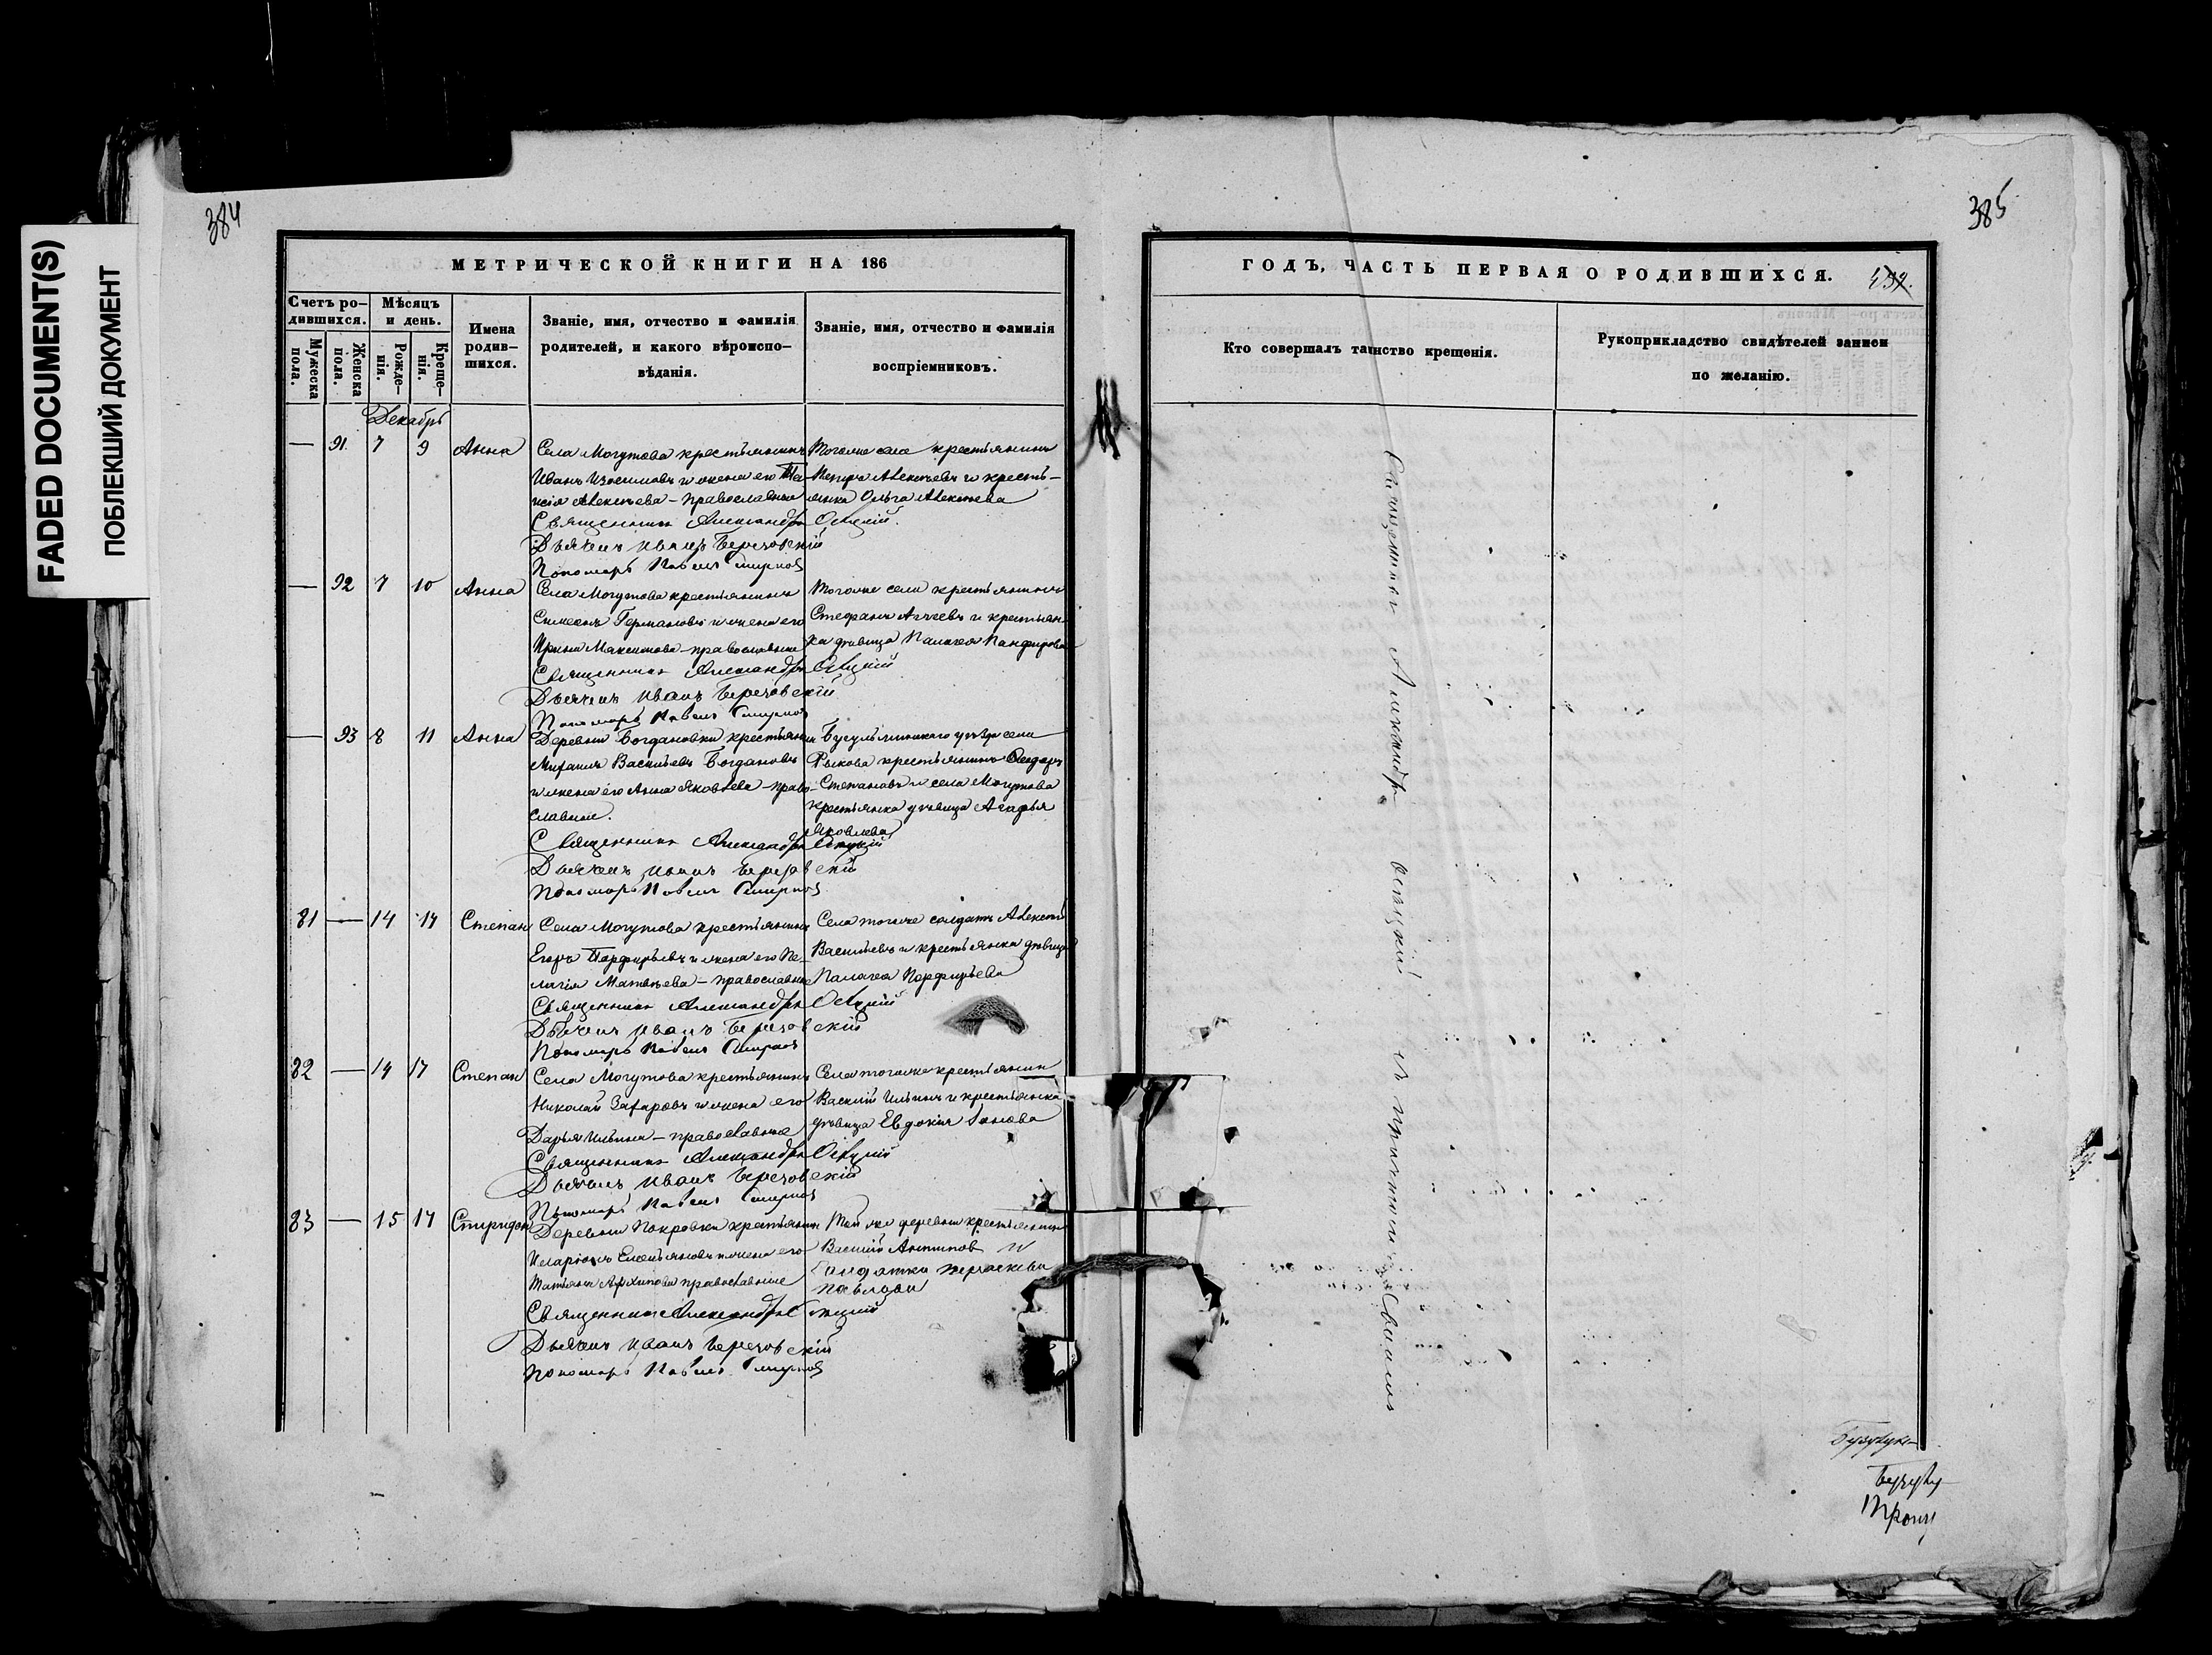 FADED DOCUMENT(S)
ПОБЛЕКШИЙ ДОКУМЕНТ
384
МЕТРИЧЕСКОЙ КНИГИ НА 186
Счетъ ро-
дившихся.
Мужеска
пола.
Женска
пола.
Мѣсяцъ
и день.
Рожде-
нія.
Креще-
нія.
Имена
родив-
шихся.
Званіе, имя, отчество и фамилія
родителей, и какого вѣроиспо-
вѣданія.
Званіе, имя, отчество и фамилія
воспріемниковъ.
Декабрь
— 91 7 9 Анна
Села Могутова крестьянинъ
Иванъ Изосимовъ и жена его Та-
исія Алексѣева - православные
Тогоже села крестьянинъ
Петръ Алексѣевъ и кресть-
янка Ольга Алексѣева
Священникъ Александръ
Дьячекъ Иванъ Березовскій
Пономарь Павелъ Смирновъ
— 92 7 10 Анна
Села Могутова крестьянинъ
Симеонъ Германовъ и жена его
Ирина Максимова - православные
Тогоже села крестьянинъ
Стефанъ и крестьян-
ка дѣвица Палагея
Священникъ Александръ
Дьячекъ Иванъ Березовскій
Пономарь Павелъ Смирновъ
— 93 8 11 Анна
Деревни Богдановки крестьянинъ
Михаилъ Васильевъ Богдановъ
и жена его Анна Яковлева - право-
славные.
Бугульминскаго уѣзда села
Рыкова крестьянинъ Ѳедоръ
Степановъ и села Могутова
крестьянка дѣвица Агафья
Яковлева
Священникъ Александръ
Дьячекъ Иванъ Березовскій
Пономарь Павелъ Смирновъ
81 — 14 14 Степанъ
Села Могутова крестьянинъ
Егоръ Порфирьевъ и жена его Пе-
лагія Матвѣева - православные
Села тогоже солдатъ Алексѣй
Васильевъ и крестьянка дѣвица
Палагея Порфирьева
Священникъ Александръ
Дьячекъ Иванъ Березовскій
Пономарь Павелъ Смирновъ
82 — 14 17 Степанъ
Села Могутова крестьянинъ
Николай Захаровъ и жена его
Дарья Ильина - православные
Села тогоже крестьянинъ
Василій Ильинъ и крестьянка
дѣвица Евдокія
Священникъ Александръ
Дьячекъ Иванъ Березовскій
Пономарь Павелъ Смирновъ
83 — 15 17 Спиридонъ
Деревни Покровки крестьянинъ
Иларіонъ Емельяновъ и жена его
Татьяна Архипова православные
Той же деревни крестьянинъ
Василій Антиповъ и
солдатка
Священникъ Александръ
Дьячекъ Иванъ Березовскій
Пономарь Павелъ Смирновъ
385
ГОДЪ, ЧАСТЬ ПЕРВАЯ О РОДИВШИХСЯ.
Кто совершалъ таинство крещенія.
Рукоприкладство свидѣтелей записи
по желанію.
Священникъ Александръ